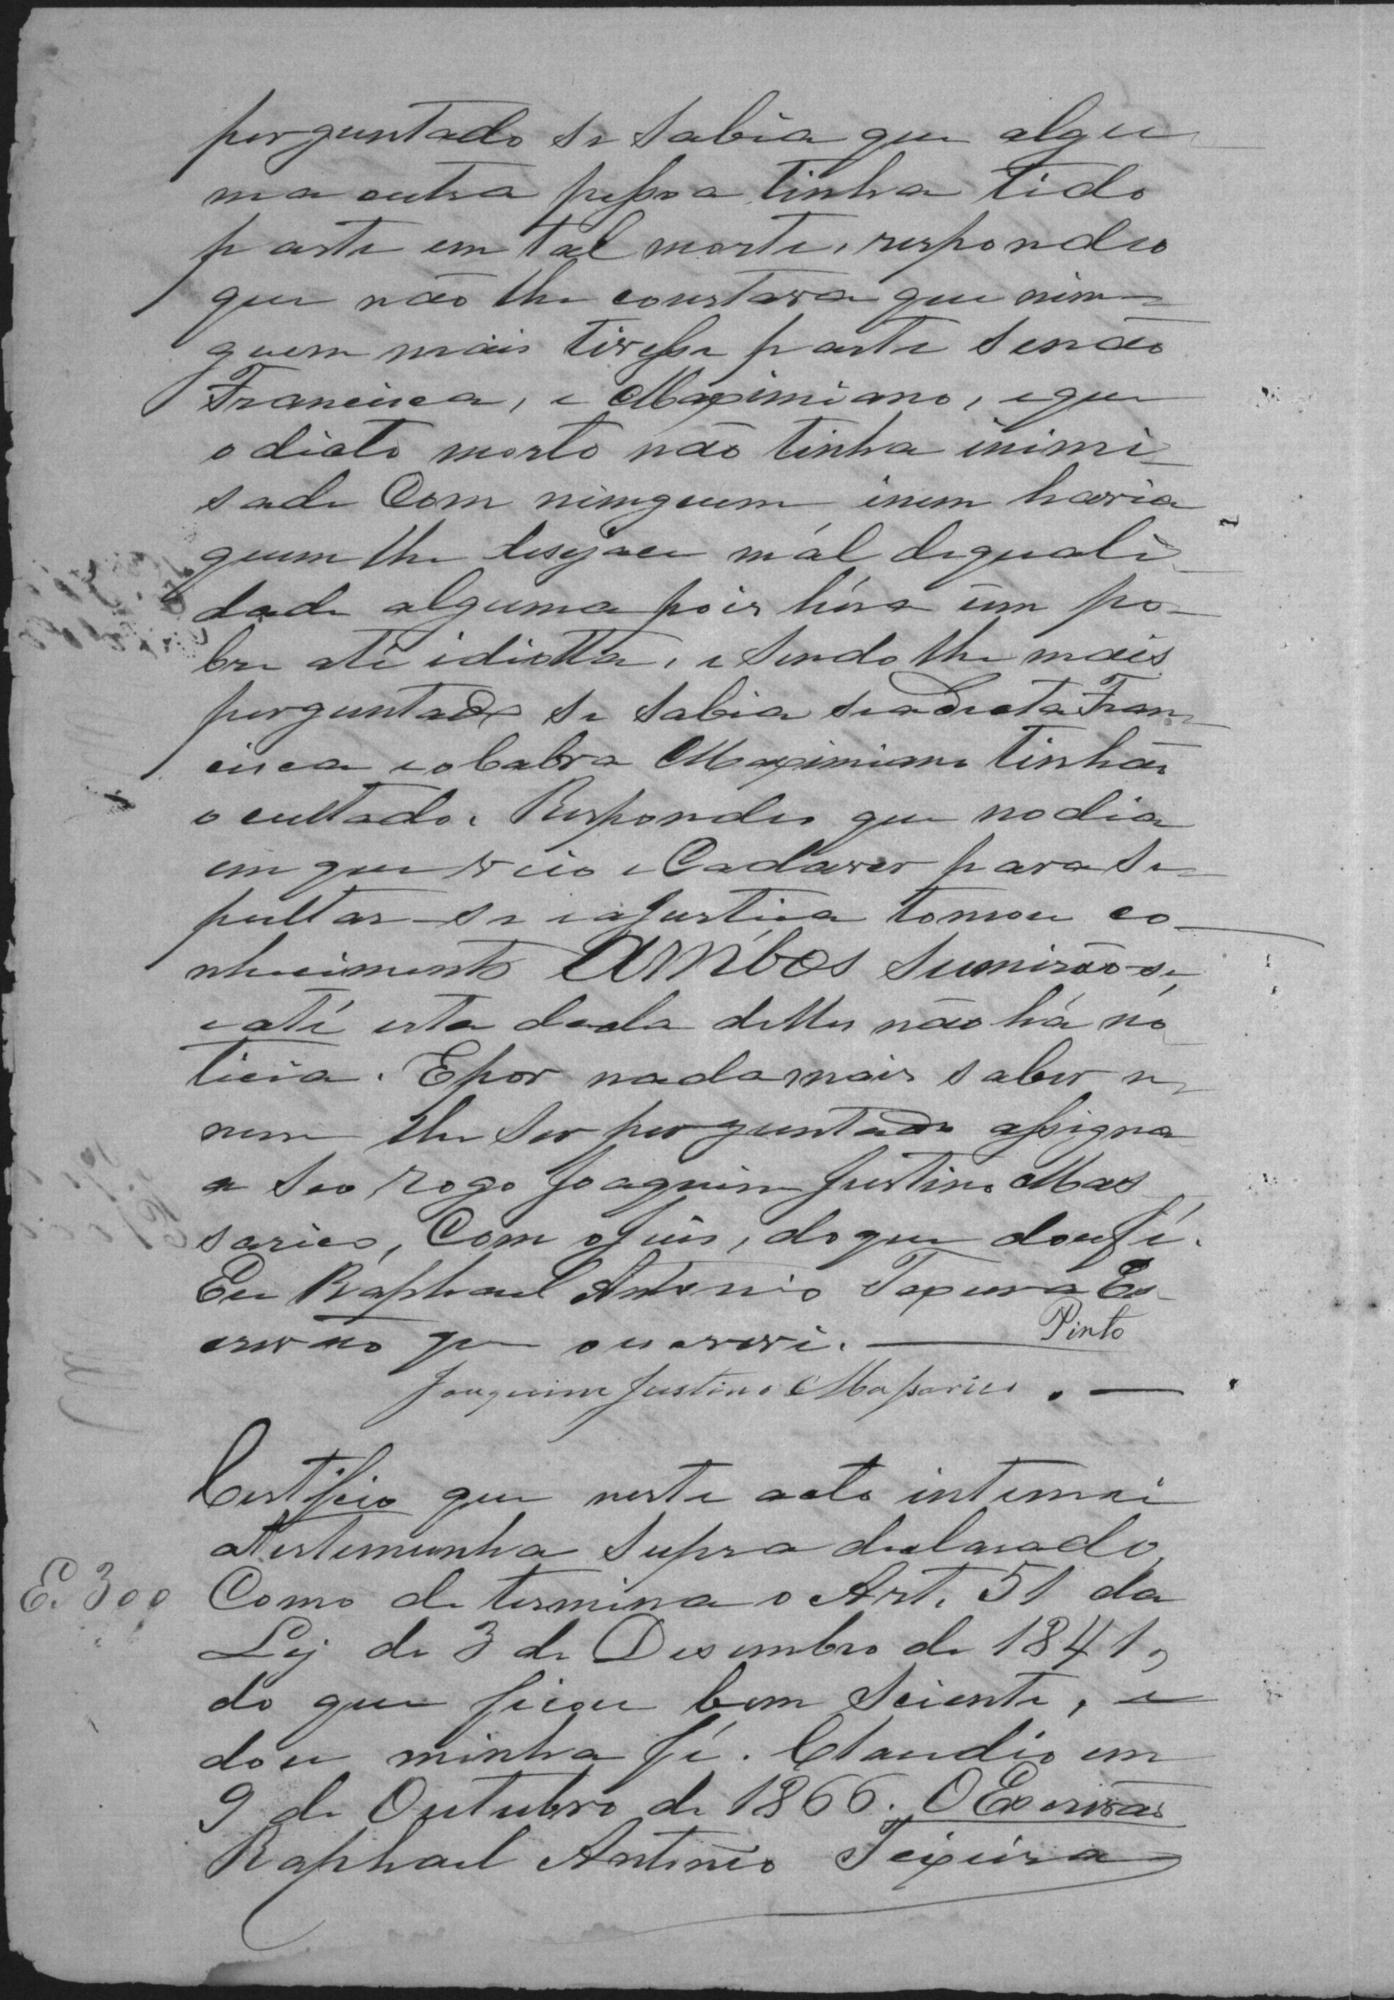 perguntado se sabia que algu
ma outra pessoa tinha tido
parte em tal morte, respondeo
que não lhe constava que nim
guem mais tivesse parte senão
Francisca, e Maximiano, e que
o dicto morto não tinha inimi
sade Com nimguem inem havia
quem lhe desejace mál de quali
dade alguma pois héra úm po-
bre até idiotta, e sendo lhe mais
perguntado se sabia se a dicta Fran
cisca e o Cabra Maximiano tinhão
ocultado. Respondeo que no dia
em que veio o Cadaver para se
pultar-se e a Justica tomou co
nhecimento Ambos sumirão-se,
e até esta dacta delles não há no
ticia. E por nada mais saber n
nem lhe ser perguntado assigna
a seo rogo Joaquim Justino Mas
sarico, Com o Juis, do que dou fé.
Eu Raphael Antonio Texeira Es
crivão que o escrevi.
Pinto
Joaquim Justino Massarico.
Certifico que neste acto intimei
a testemunha supra declarado,
E. 300 Como determina o Art. 51 da
Lej de 3 de Desembro de 1841,
do que ficou bem sciente, e
dou minha fé. Claudio em
9 de Outubro de 1866. O Escrivão
Raphael Antonio Teixeira